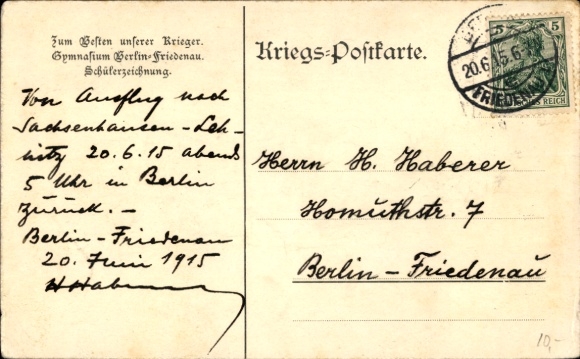 Zum Besten unserer Krieger.
Gymnasium Berlin-Friedenau.
Schülerzeichnung.
Kriegs-Postkarte.
5
20.6.15.6-
FRIEDENAU
REICH
Von Ausflug nach
Sachsenhausen - Leh-
nitz 20.6.15 abends
5 Uhr in Berlin
zurück. -
Berlin - Friedenau
20. Juni 1915
Herrn H. Haberer
Homuthstr. 7
Berlin - Friedenau
10,-